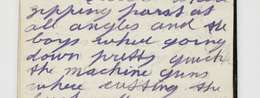 zipping past at
all angles and the
boys whel going
down pretty quick
the machine guns
where cutting the